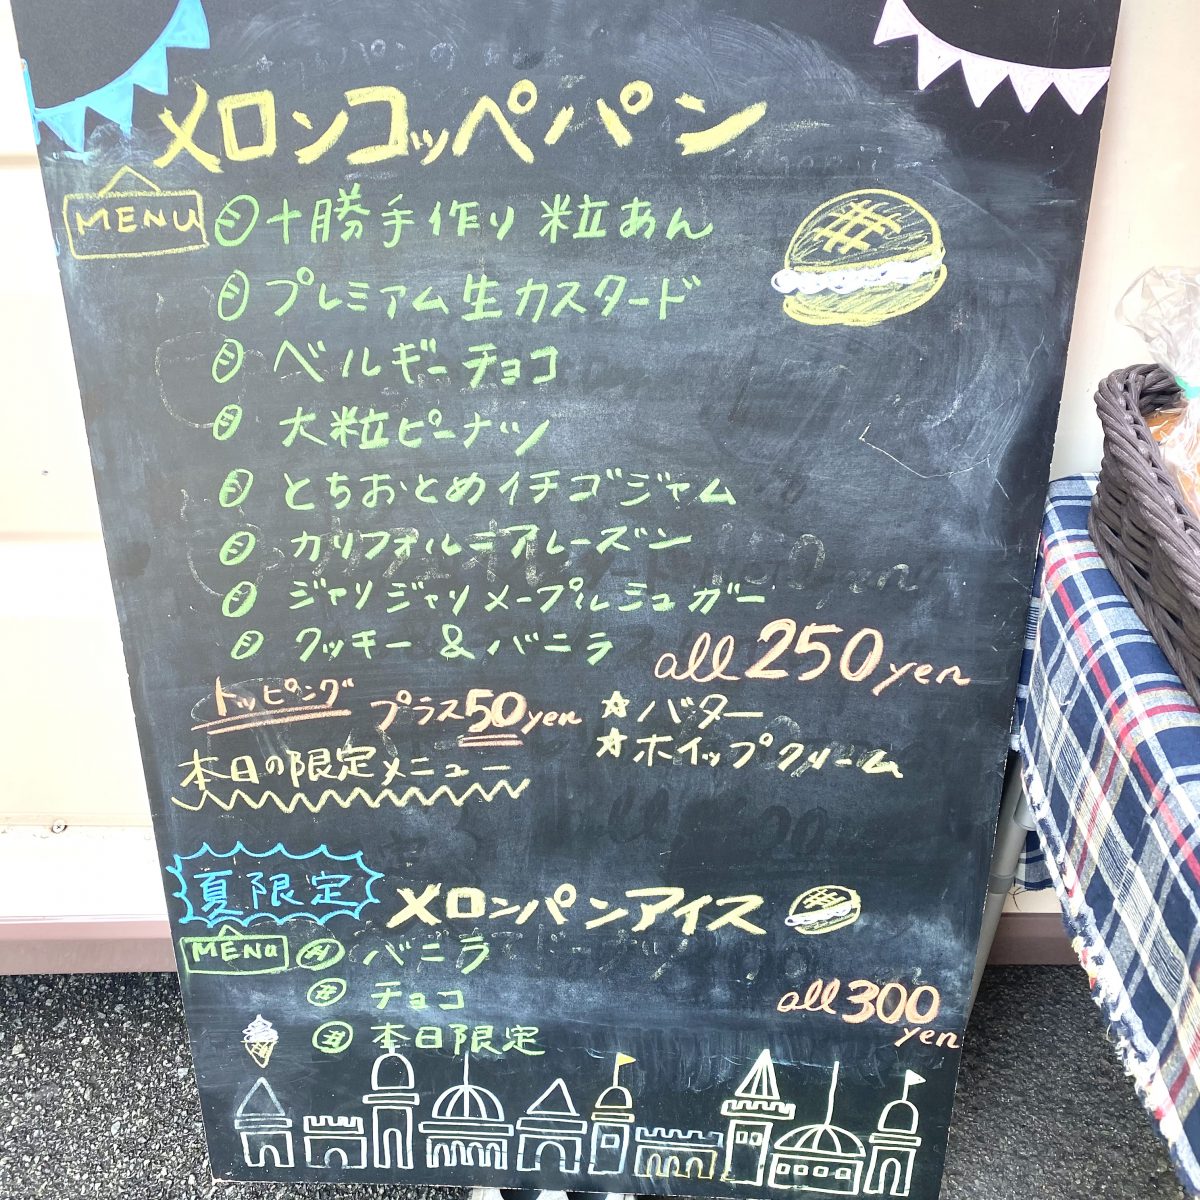 メロンコッペパン
MENU
十勝手作り 粒あん
プレミアム生カスタード
ベルギーチョコ
大粒ピーナツ
とちおとめイチゴジャム
カリフォルニアレーズン
ジャリジャリメープルシュガー
クッキー&バニラ
all 250yen
トッピング プラス50yen
☆バター
☆ホイップクリーム
本日の限定メニュー
夏限定
メロンパンアイス
MENU
バニラ
チョコ
本日限定
all 300yen